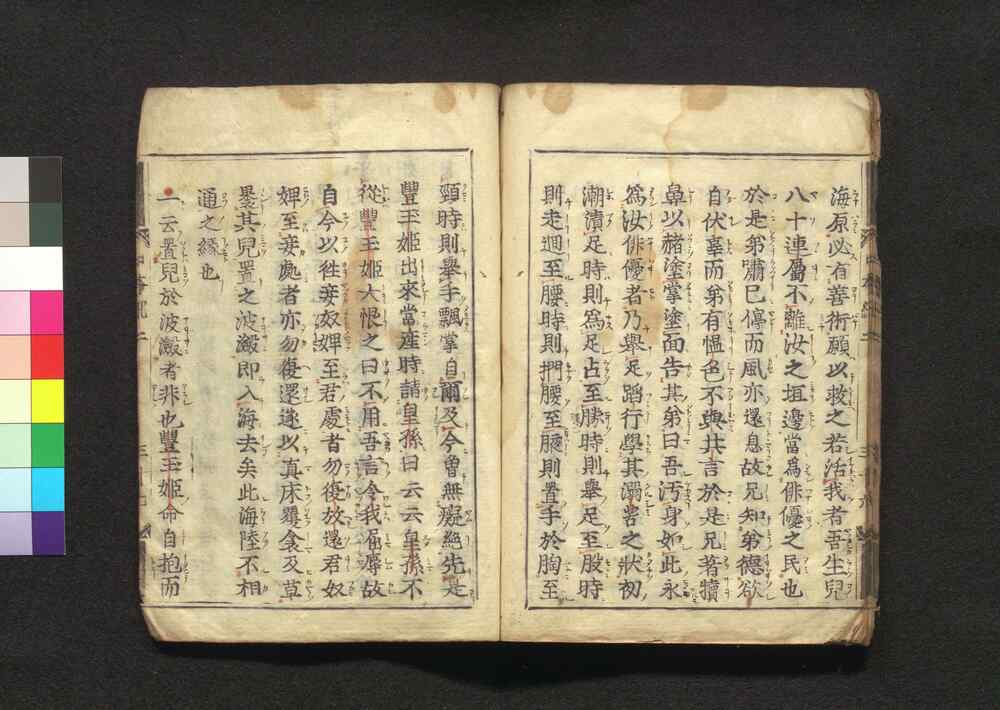 海原必有善術願以救之若活我者吾生兒
八十連屬不離汝之垣邊當爲俳優之民也
於是弟嘯已停而風亦還息故兄知弟德欲
自伏辜而弟有慍色不與共言於是兄著犢
鼻以赭塗掌塗面告其弟曰吾汚身如此永
爲汝俳優者乃舉足蹈行學其溺苦之狀初
潮漬足時則爲足占至膝時則舉足至股時
則走廻至腰時則捫腰至腋則置手於胸至
頸時則舉手飄掌自爾及今曽無廢絶先是
豐玉姫出來當產時請皇孫曰云云皇孫不
從豐玉姫大恨之曰不用吾言令我屈辱故
自今以徃妾奴婢至君處者勿復放還君奴
婢至妾處者亦勿復還遂以真床覆衾及草
裹其兒置之波瀲即入海去矣此海陸不相
通之縁也
一云置兒於波瀲者非也豐玉姫命自抱而